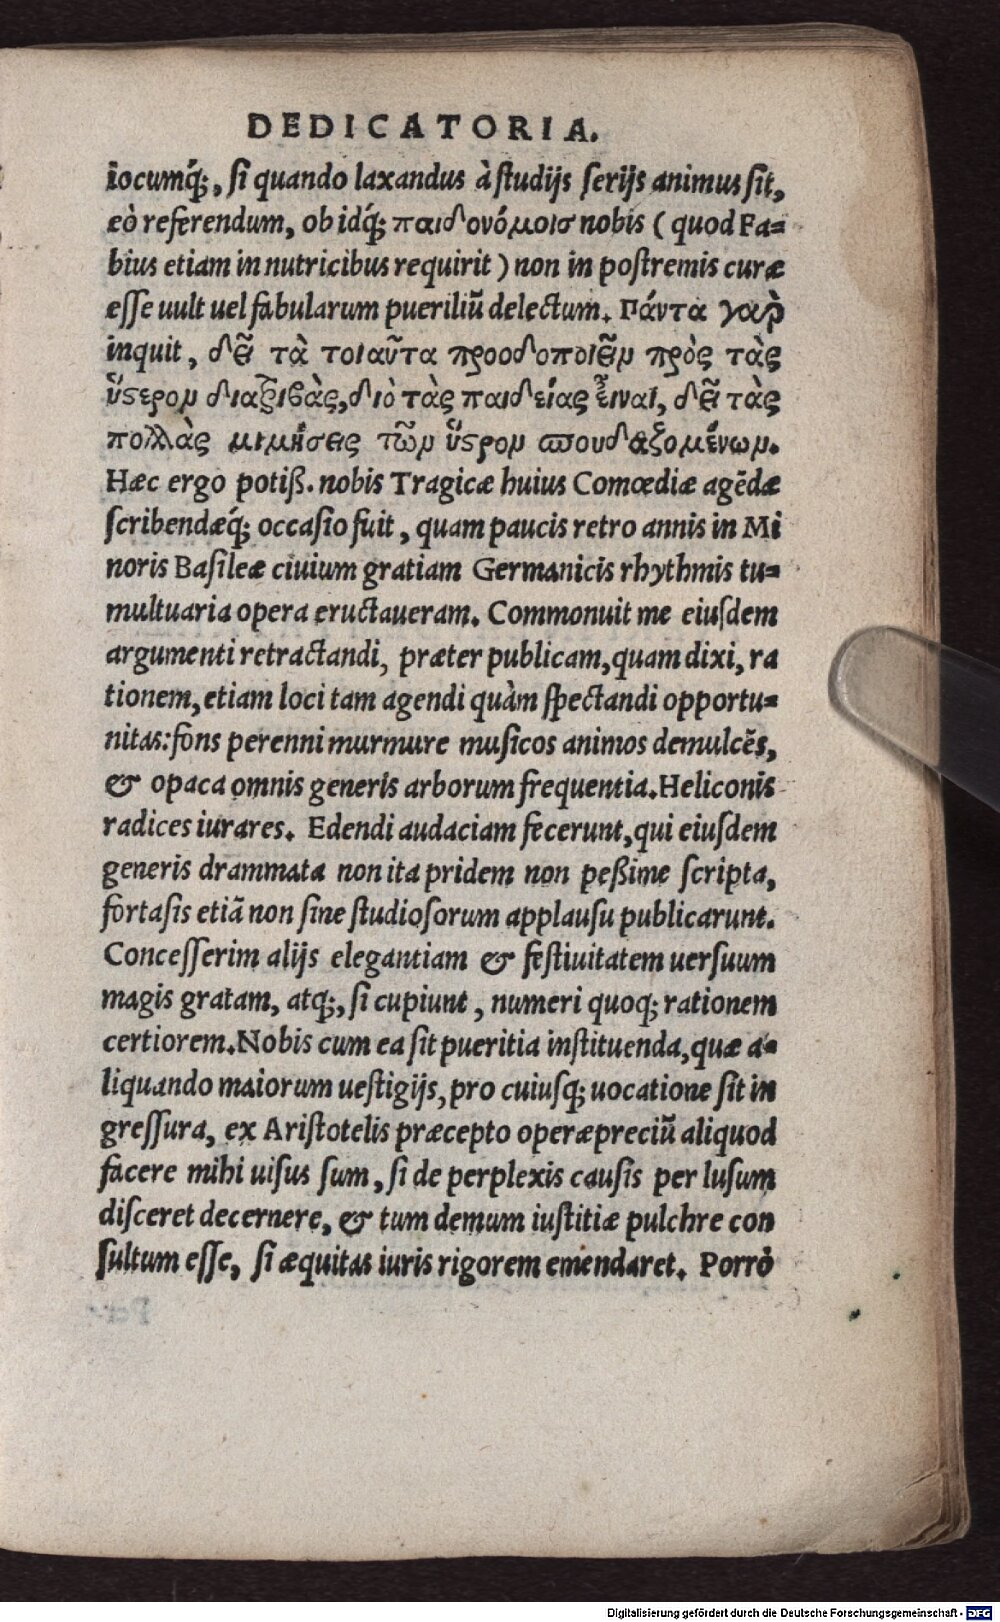 DEDICATORIA.
iocumq́;, si quando laxandus à studijs serijs animus sit,
eò referendum, ob idq́; παιδονόμοισ nobis ( quod Fa=
bius etiam in nutricibus requirit ) non in postremis curæ
esse uult uel fabularum pueriliũ delectum. Πάντα γαρ̀
inquit, δεῖ τὰ τοιαῦτα προοδοποιεῖν πρὸς τὰς
ὕστερον διατριβὰς, διὸ τὰς παιδείας εἶναι, δεῖ τὰς
πολλὰς μιμήσεις τῶν ὕστρον σπουδαζομένων.
Hæc ergo potiß. nobis Tragicæ huius Comœdiæ agẽdæ
scribendæq́; occasio fuit, quam paucis retro annis in Mi
noris Basileæ ciuium gratiam Germanicis rhythmis tu=
multuaria opera eructaueram. Commonuit me eiusdem
argumenti retractandi, præter publicam, quam dixi, ra
tionem, etiam loci tam agendi quàm spectandi opportu=
nitas: fons perenni murmure musicos animos demulcẽs,
& opaca omnis generis arborum frequentia. Heliconis
radices iurares. Edendi audaciam fecerunt, qui eiusdem
generis drammata non ita pridem non peßime scripta,
fortasis etiã non sine studiosorum applausu publicarunt.
Concesserim alijs elegantiam & festiuitatem uersuum
magis gratam, atq;, si cupiunt, numeri quoq; rationem
certiorem. Nobis cum ea sit pueritia instituenda, quæ a=
liquando maiorum uestigijs, pro cuiusq; uocatione sit in
gressura, ex Aristotelis præcepto operæpreciũ aliquod
facere mihi uisus sum, si de perplexis causis per lusum
disceret decernere, & tum demum iustitiæ pulchre con
sultum esse, si æquitas iuris rigorem emendaret. Porrò
Digitalisierung gefördert durch die Deutsche Forschungsgemeinschaft - DFG